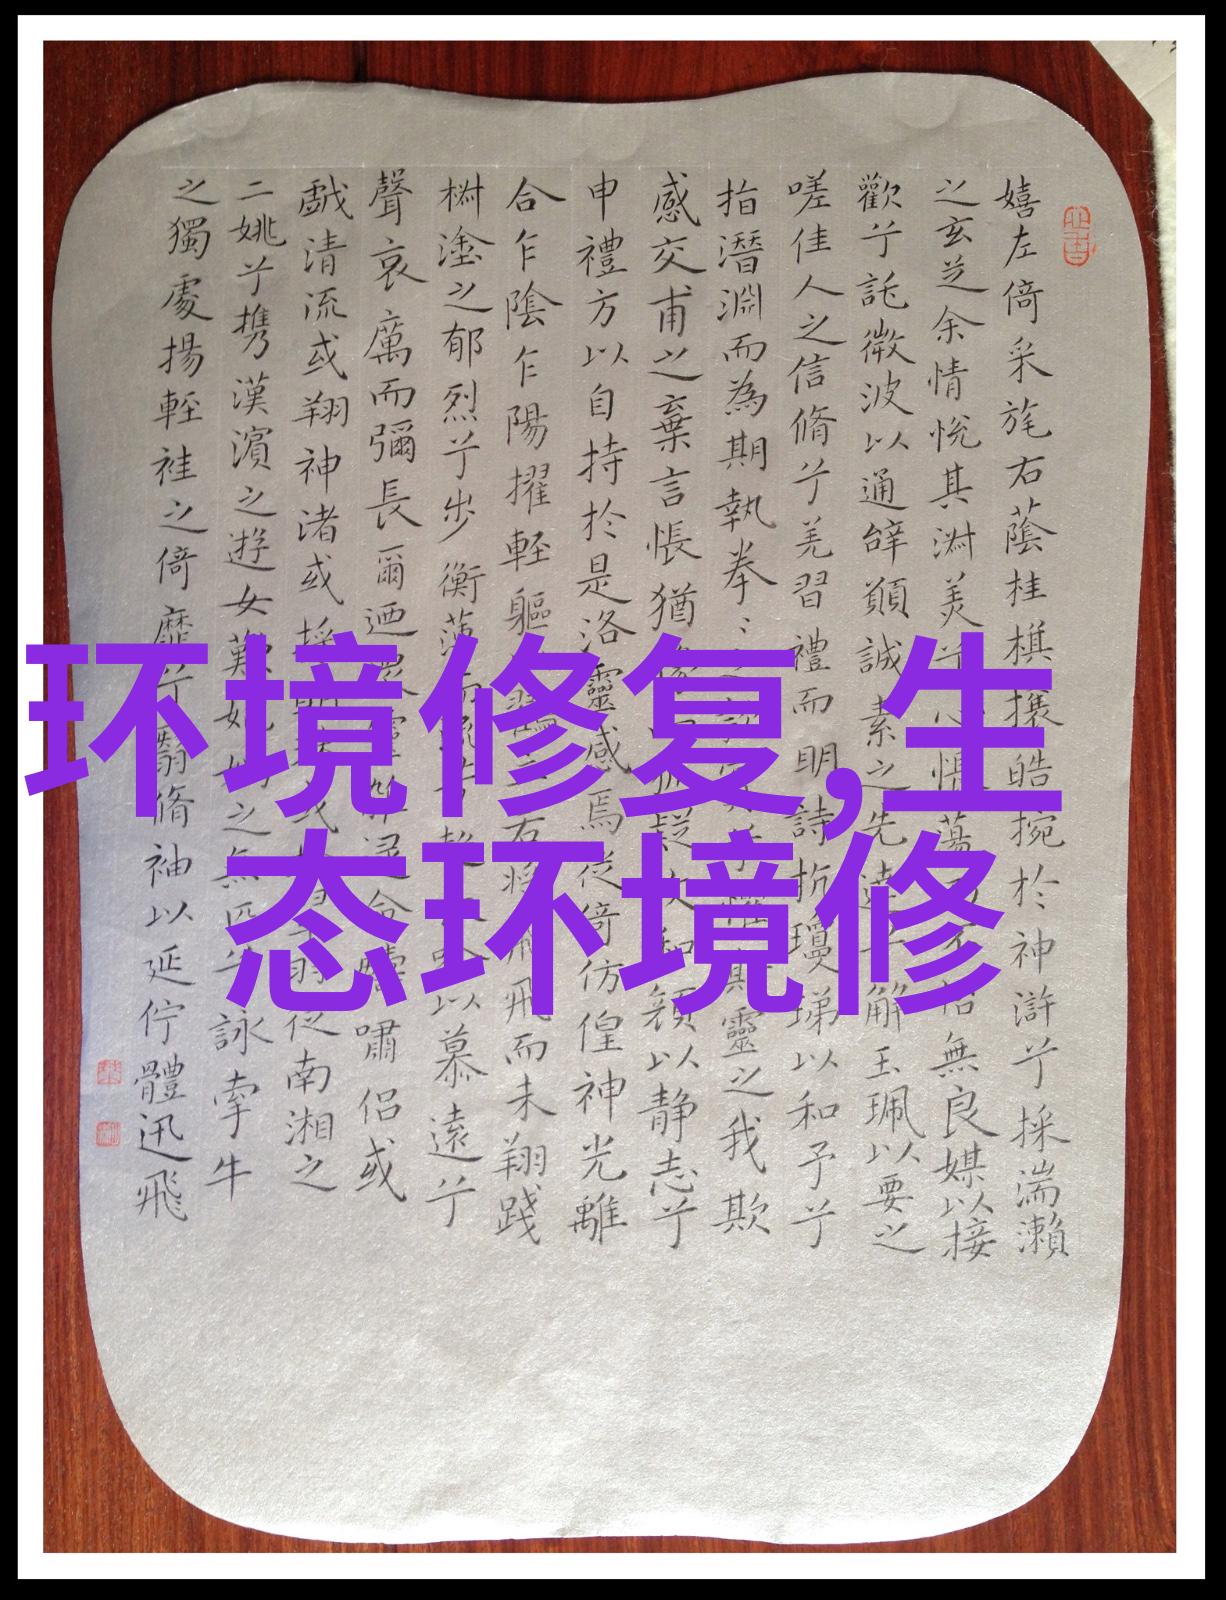 嬉左倚采旄右蔭桂棋攘皓捥於神滸兮採湍瀨
之玄芝余情悅其淋美兮心悵蕩而不怡無良媒以接
歡兮託微波以通辝顚誠素之先達兮解玉珮以要之
嗟佳人之信脩兮羌習禮而明詩抗瓊珶以和予兮
指潛淵而為期執拳〻之兮懼其靈之我欺
感交甫之棄言悵猶豫而狐疑收和顏以静志兮
申禮方以自持於是洛靈感焉徙倚仿偟神光離
合乍陰乍陽擢輕軀以鶴立若將飛而未翔踐
樹塗之郁烈兮步衡薄而流芳超長吟以慕遠兮
聲哀厲而彌長爾迺眾靈雜遝命疇嘯侶或
戲清流或翔神渚或採明珠或拾翠羽從南湘之
二姚兮携漢濱之遊女歎匏媧之無匹兮詠牽牛
之獨處揚輕袿之倚靡兮翳脩袖以延佇體迅飛
环境修复,生
态环境修